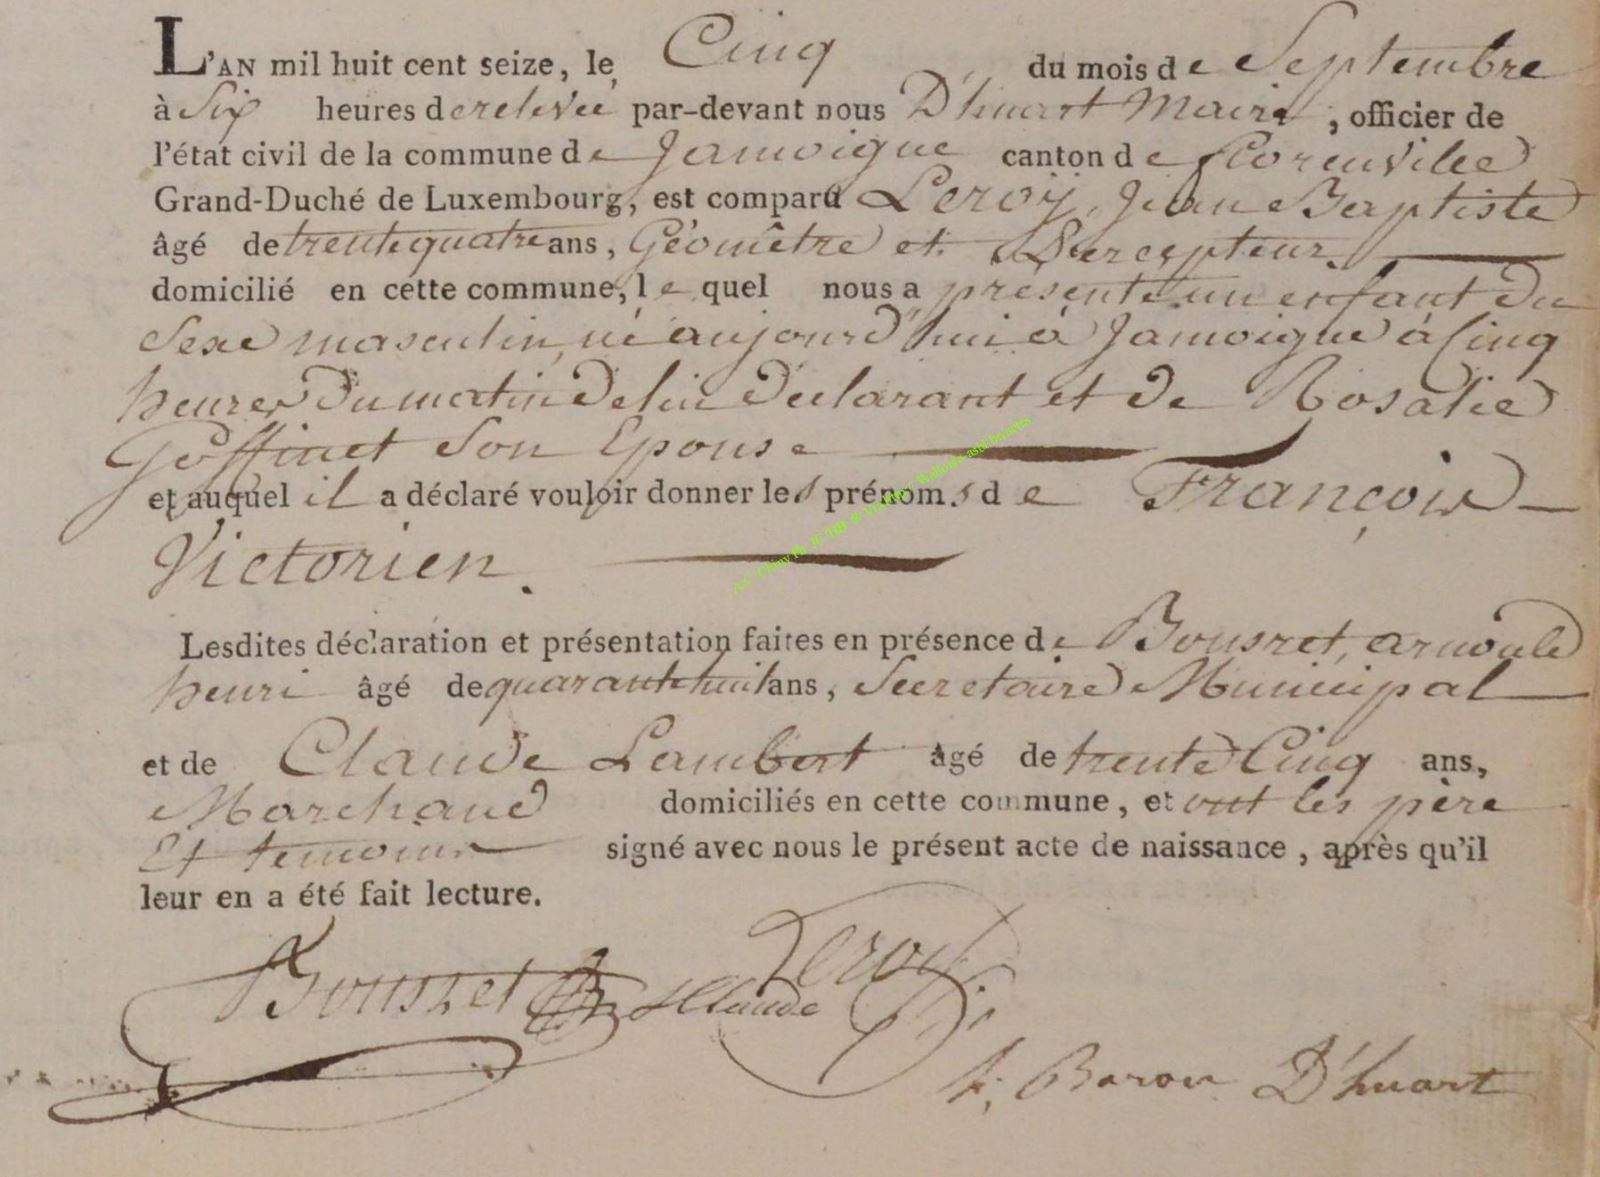 L'AN mil huit cent seize, le Cinq du mois de Septembre
à Six heures de relevée par-devant nous D'huart Maire, officier de
l'état civil de la commune de Jamoigne canton de florenville
Grand-Duché de Luxembourg, est comparu Leroy, Jean Baptiste
âgé de trente quatre ans, Géomètre et Percepteur
domicilié en cette commune, lequel nous a présenté un enfant du
Sexe masculin, né aujourd'hui à Jamoigne à Cinq
heures du matin de lui déclarant et de Rosalie
Goffinet Son Epouse
et auquel il a déclaré vouloir donner les prénoms de François
Victorien.
Lesdites déclaration et présentation faites en présence de Bousret, arnould
henri âgé de quarante huit ans, Secretaire Municipal
et de Claude Lambert âgé de trente Cinq ans,
Marchand domiciliés en cette commune, et ont les père
Et temoins signé avec nous le présent acte de naissance, après qu'il
leur en a été fait lecture.
Bousret Claude Leroy
Baron D'huart